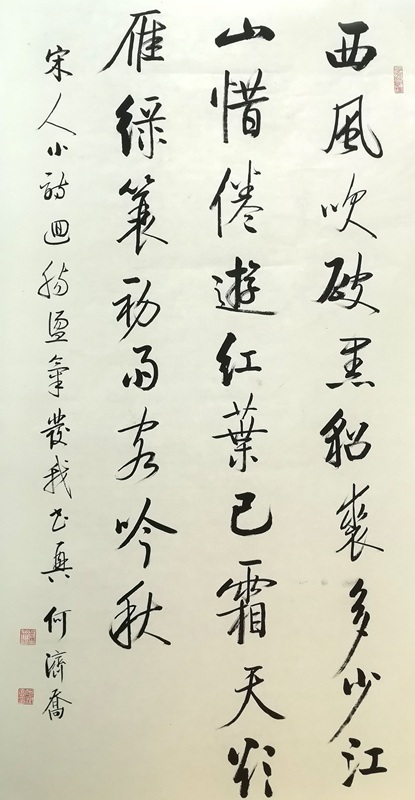 西風吹破黑貂裘多少江
山惜倦遊紅葉已霜天欲
雁綠蓑初雨客吟秋
宋人小詩迴腸盪氣發我書興何濟喬